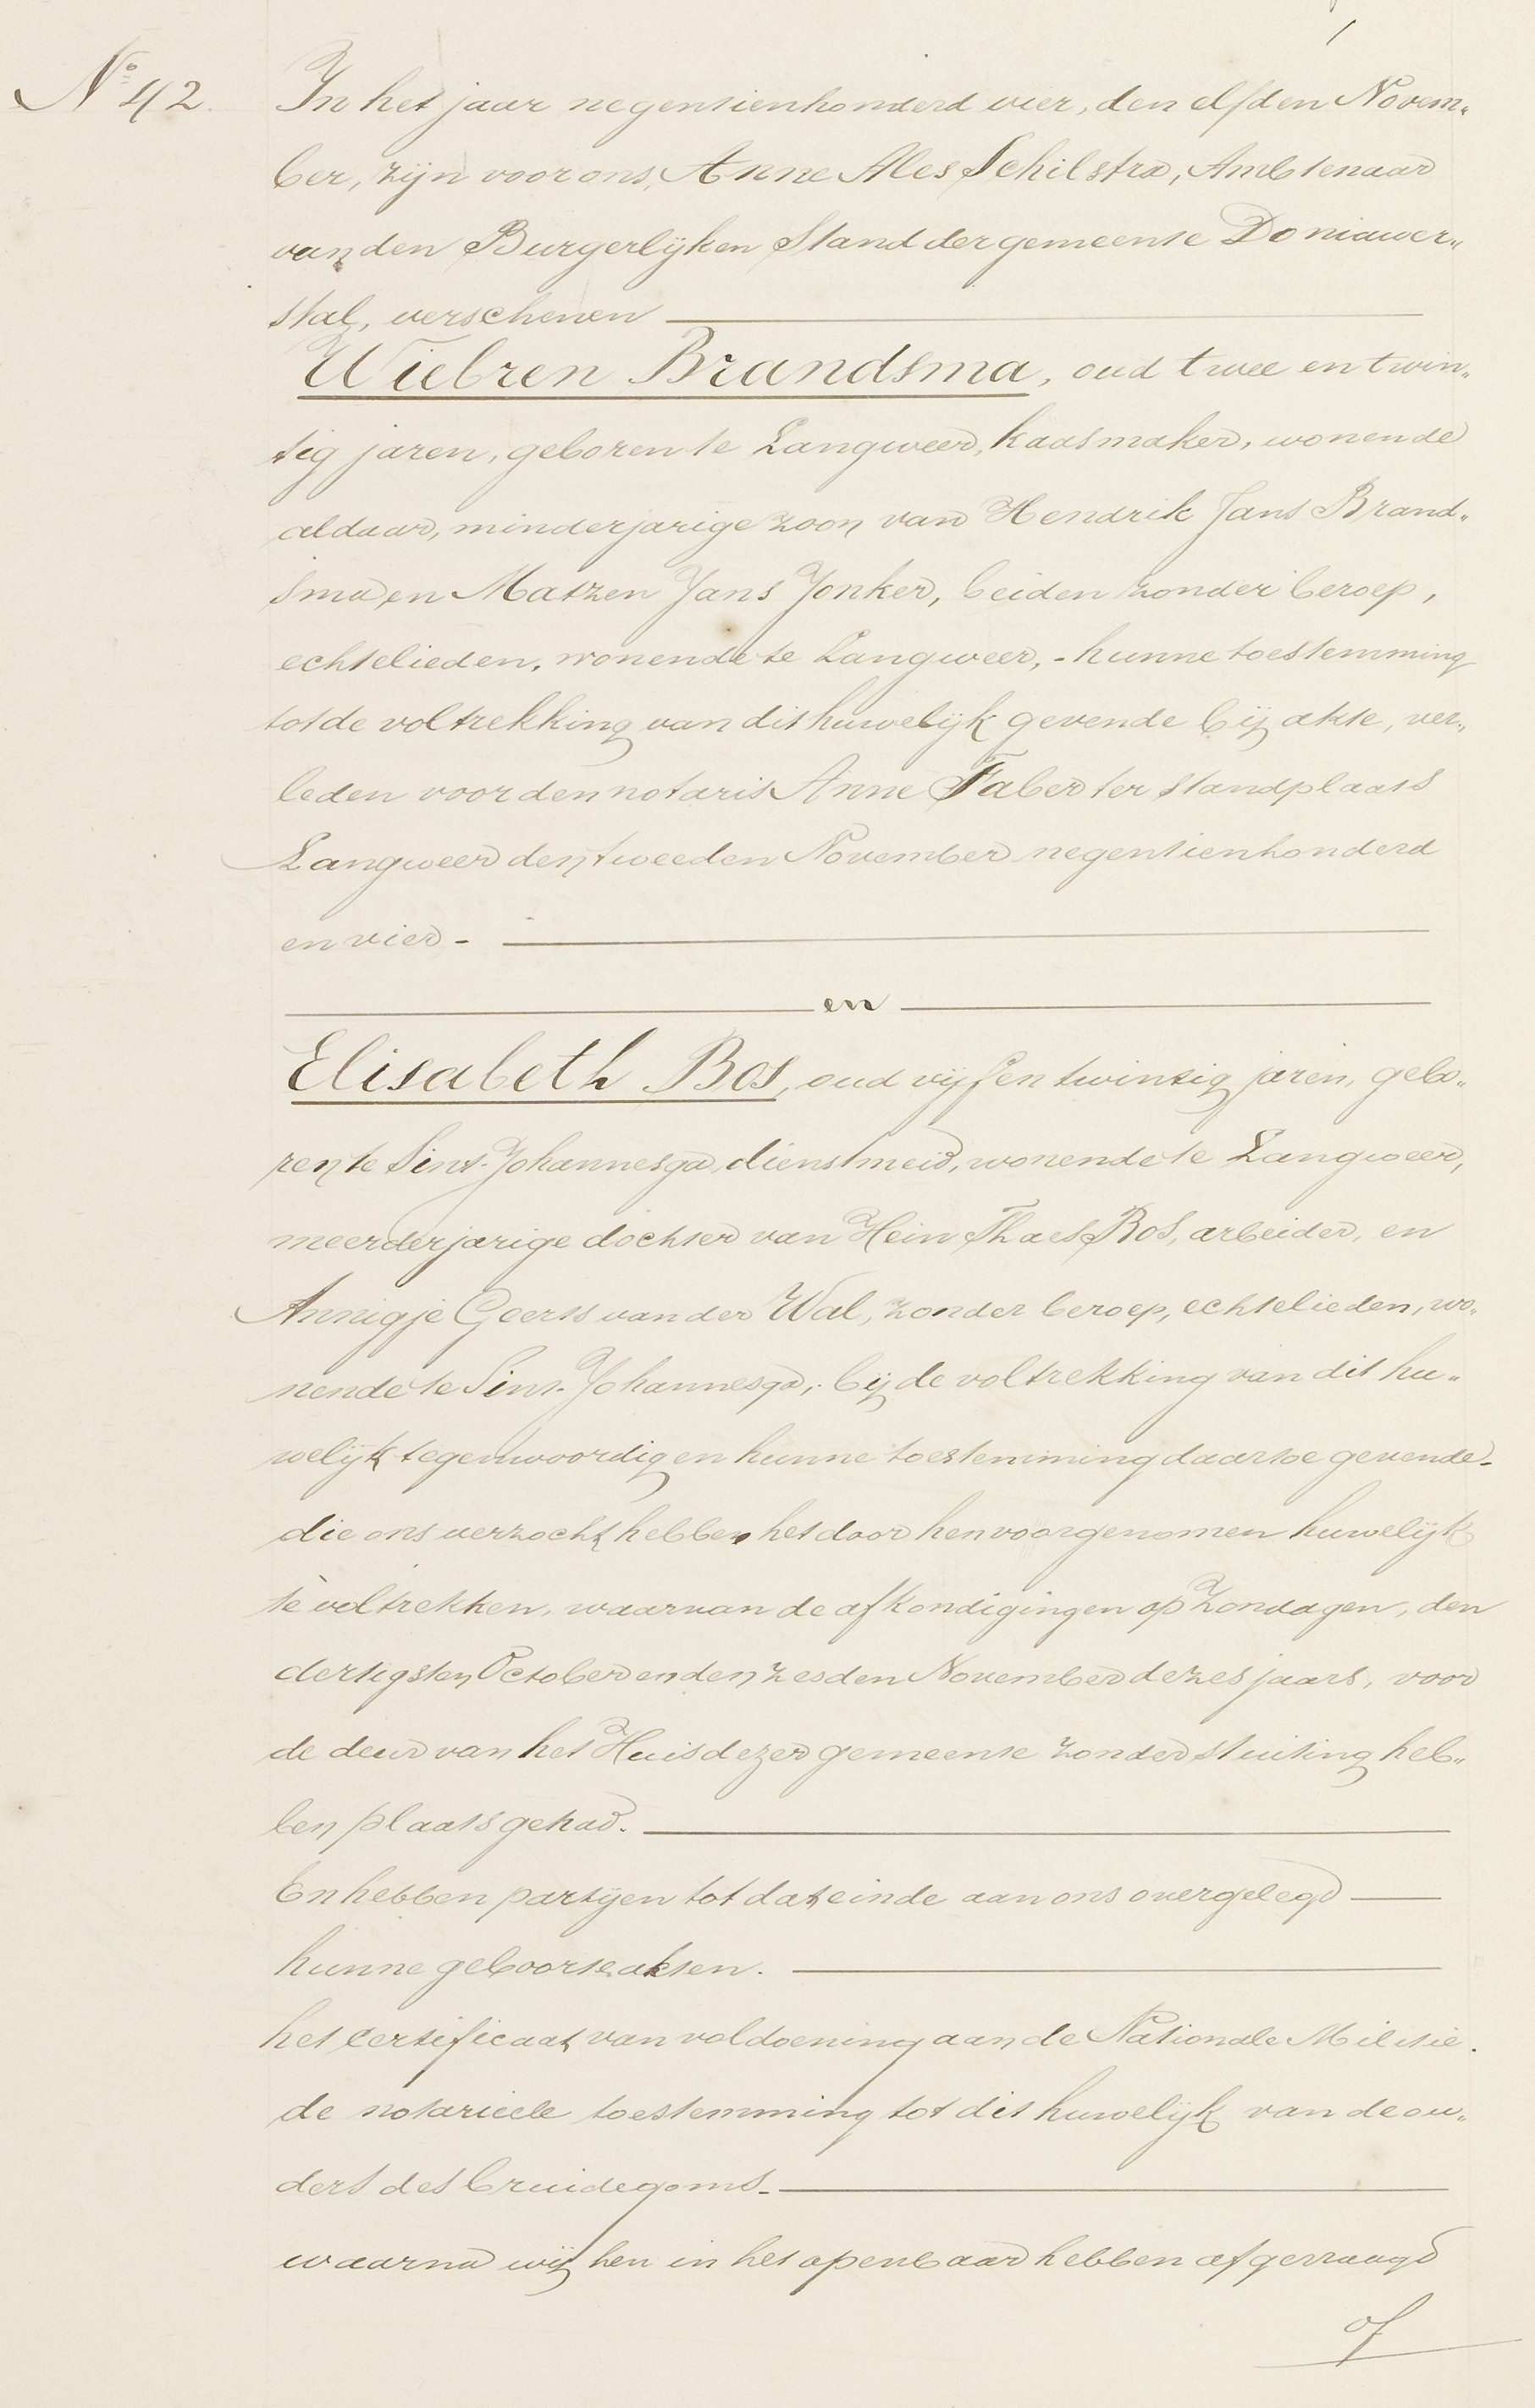 No 42. In het jaar negentienhonderd vier, den elfden Novem„
ber, zijn voor ons, Anne Ales Schilstra, Ambtenaar
van den Burgerlijken Stand der gemeente Doniawer„
stal, verschenen
Wiebren Brandsma, oud twee en twin„
tig jaren, geboren te Langweer, kaasmaker, wonende
aldaar, minderjarige zoon van Hendrik Jans Brand„
sma en Matzen Jans Jonker, beiden zonder beroep,
echtelieden, wonende te Langweer, - hunne toestemming
tot de voltrekking van dit huwelijk gevende bij akte, ver„
leden voor den notaris Anne Faber ter standplaats
Langweer den tweeden November negentienhonderd
en vier -
en
Elisabeth Bos, oud vijf en twintig jaren, gebo„
ren te Sint-Johannesga, dienstmeid, wonende te Langweer,
meerderjarige dochter van Hein Thaes Bos, arbeider, en
Annigje Geerts van der Wal, zonder beroep, echtelieden, wo„
nende te Sint-Johannesga, bij de voltrekking van dit hu„
welijk tegenwoordig en hunne toestemming daartoe gevende -
die ons verzocht hebben het door hen voorgenomen huwelijk
te voltrekken, waarvan de afkondigingen op Zondagen, den
dertigsten October en den zesden November dezes jaars, voor
de deur van het Huis dezer gemeente zonder stuiting heb„
ben plaats gehad.
En hebben partijen tot dat einde aan ons overgelegd
hunne geboorteakten.
het certificaat van voldoening aan de Nationale Militie.
de notarieele toestemming tot dit huwelijk van de ou„
ders des bruidegoms -
waarna wij hen in het openbaar hebben afgevraagd
of